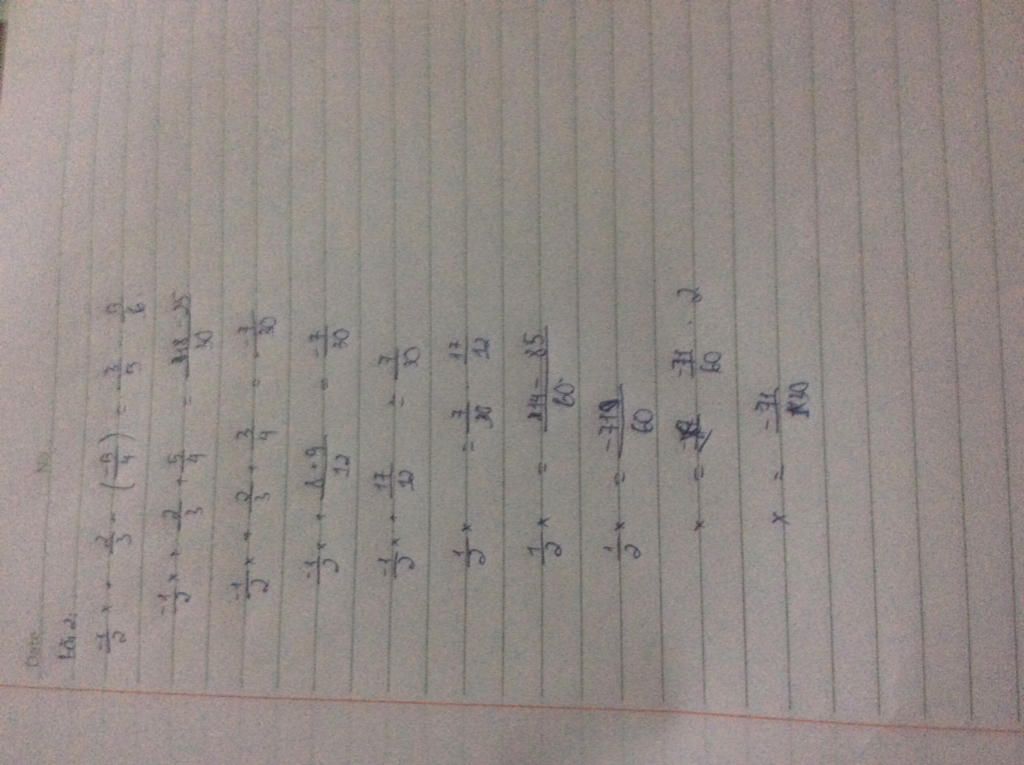 Date No.
Bài 2.
-1/2 x + 2/3 - (-3/4) = 3/5 - 5/6
-1/2 x + 2/3 + 3/4 = 18 - 25/30
-1/2 x + 2/3 + 3/4 = -7/30
-1/2 x + 8+9/12 = -7/30
-1/2 x + 17/12 = -7/30
1/2 x = -7/30 - 17/12
1/2 x = -14 - 85/60
1/2 x = /60
x = -71/60 . 2
x = -71/30